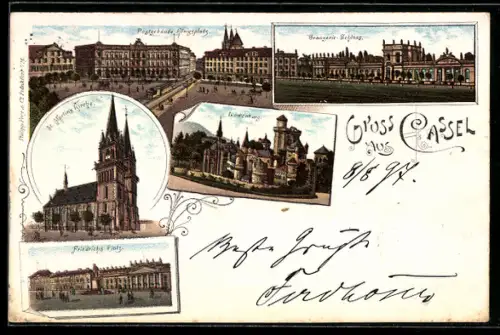 Postgebäude Königsplatz
Orangerie-Schloss.
St. Martins Kirche
Löwenburg
Friedrichs Platz
GRUSS
AUS
CASSEL
8/8 97.
Beste Grüße